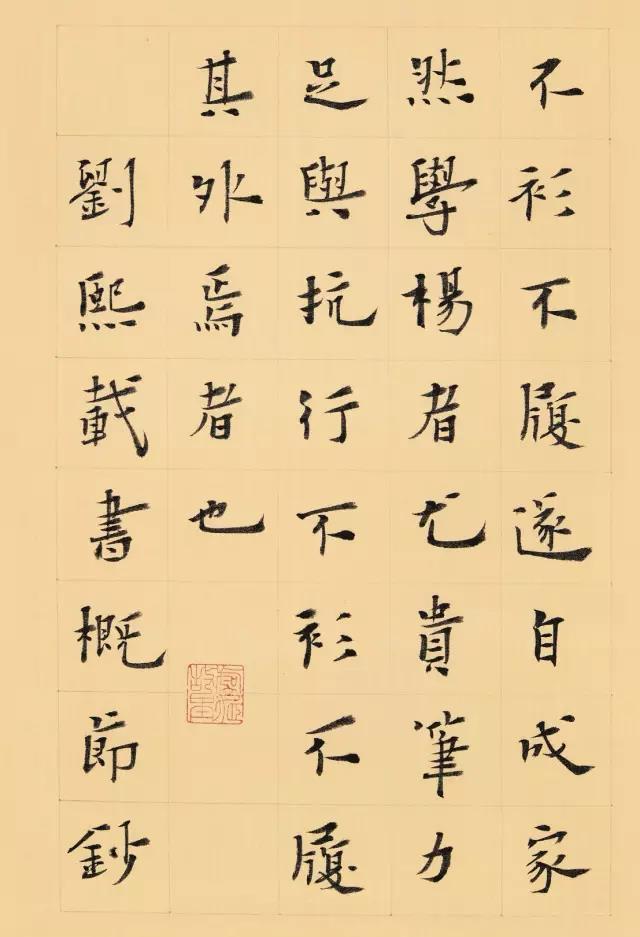 不衫不履遂自成家
然學楊者尤貴筆力
足與抗行不衫不履
其外焉者也
劉熙載書概節鈔